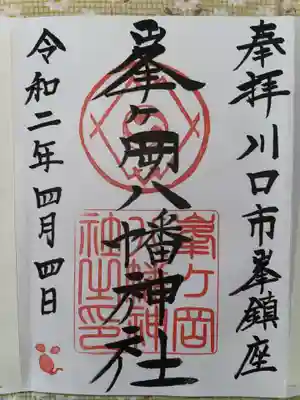 奉拝川口市峯鎮座
峯ヶ岡八幡神社
峯ヶ岡
八幡神
社之印
令和二年四月四日